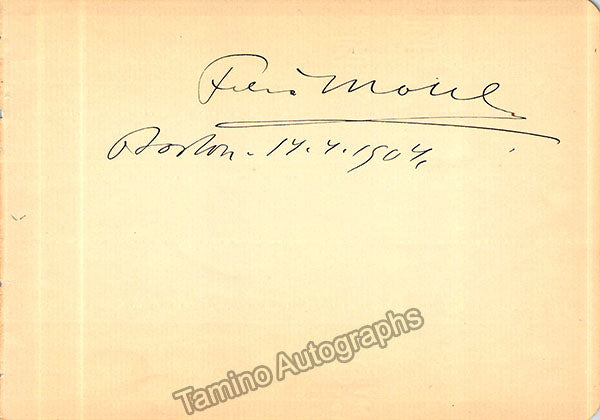 Felix Mottl
Boston. 14.4.1904.
Tamino Autographs